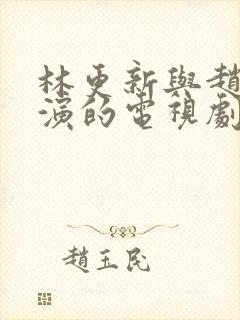 林更新與趙
演的電視劇
趙玉民